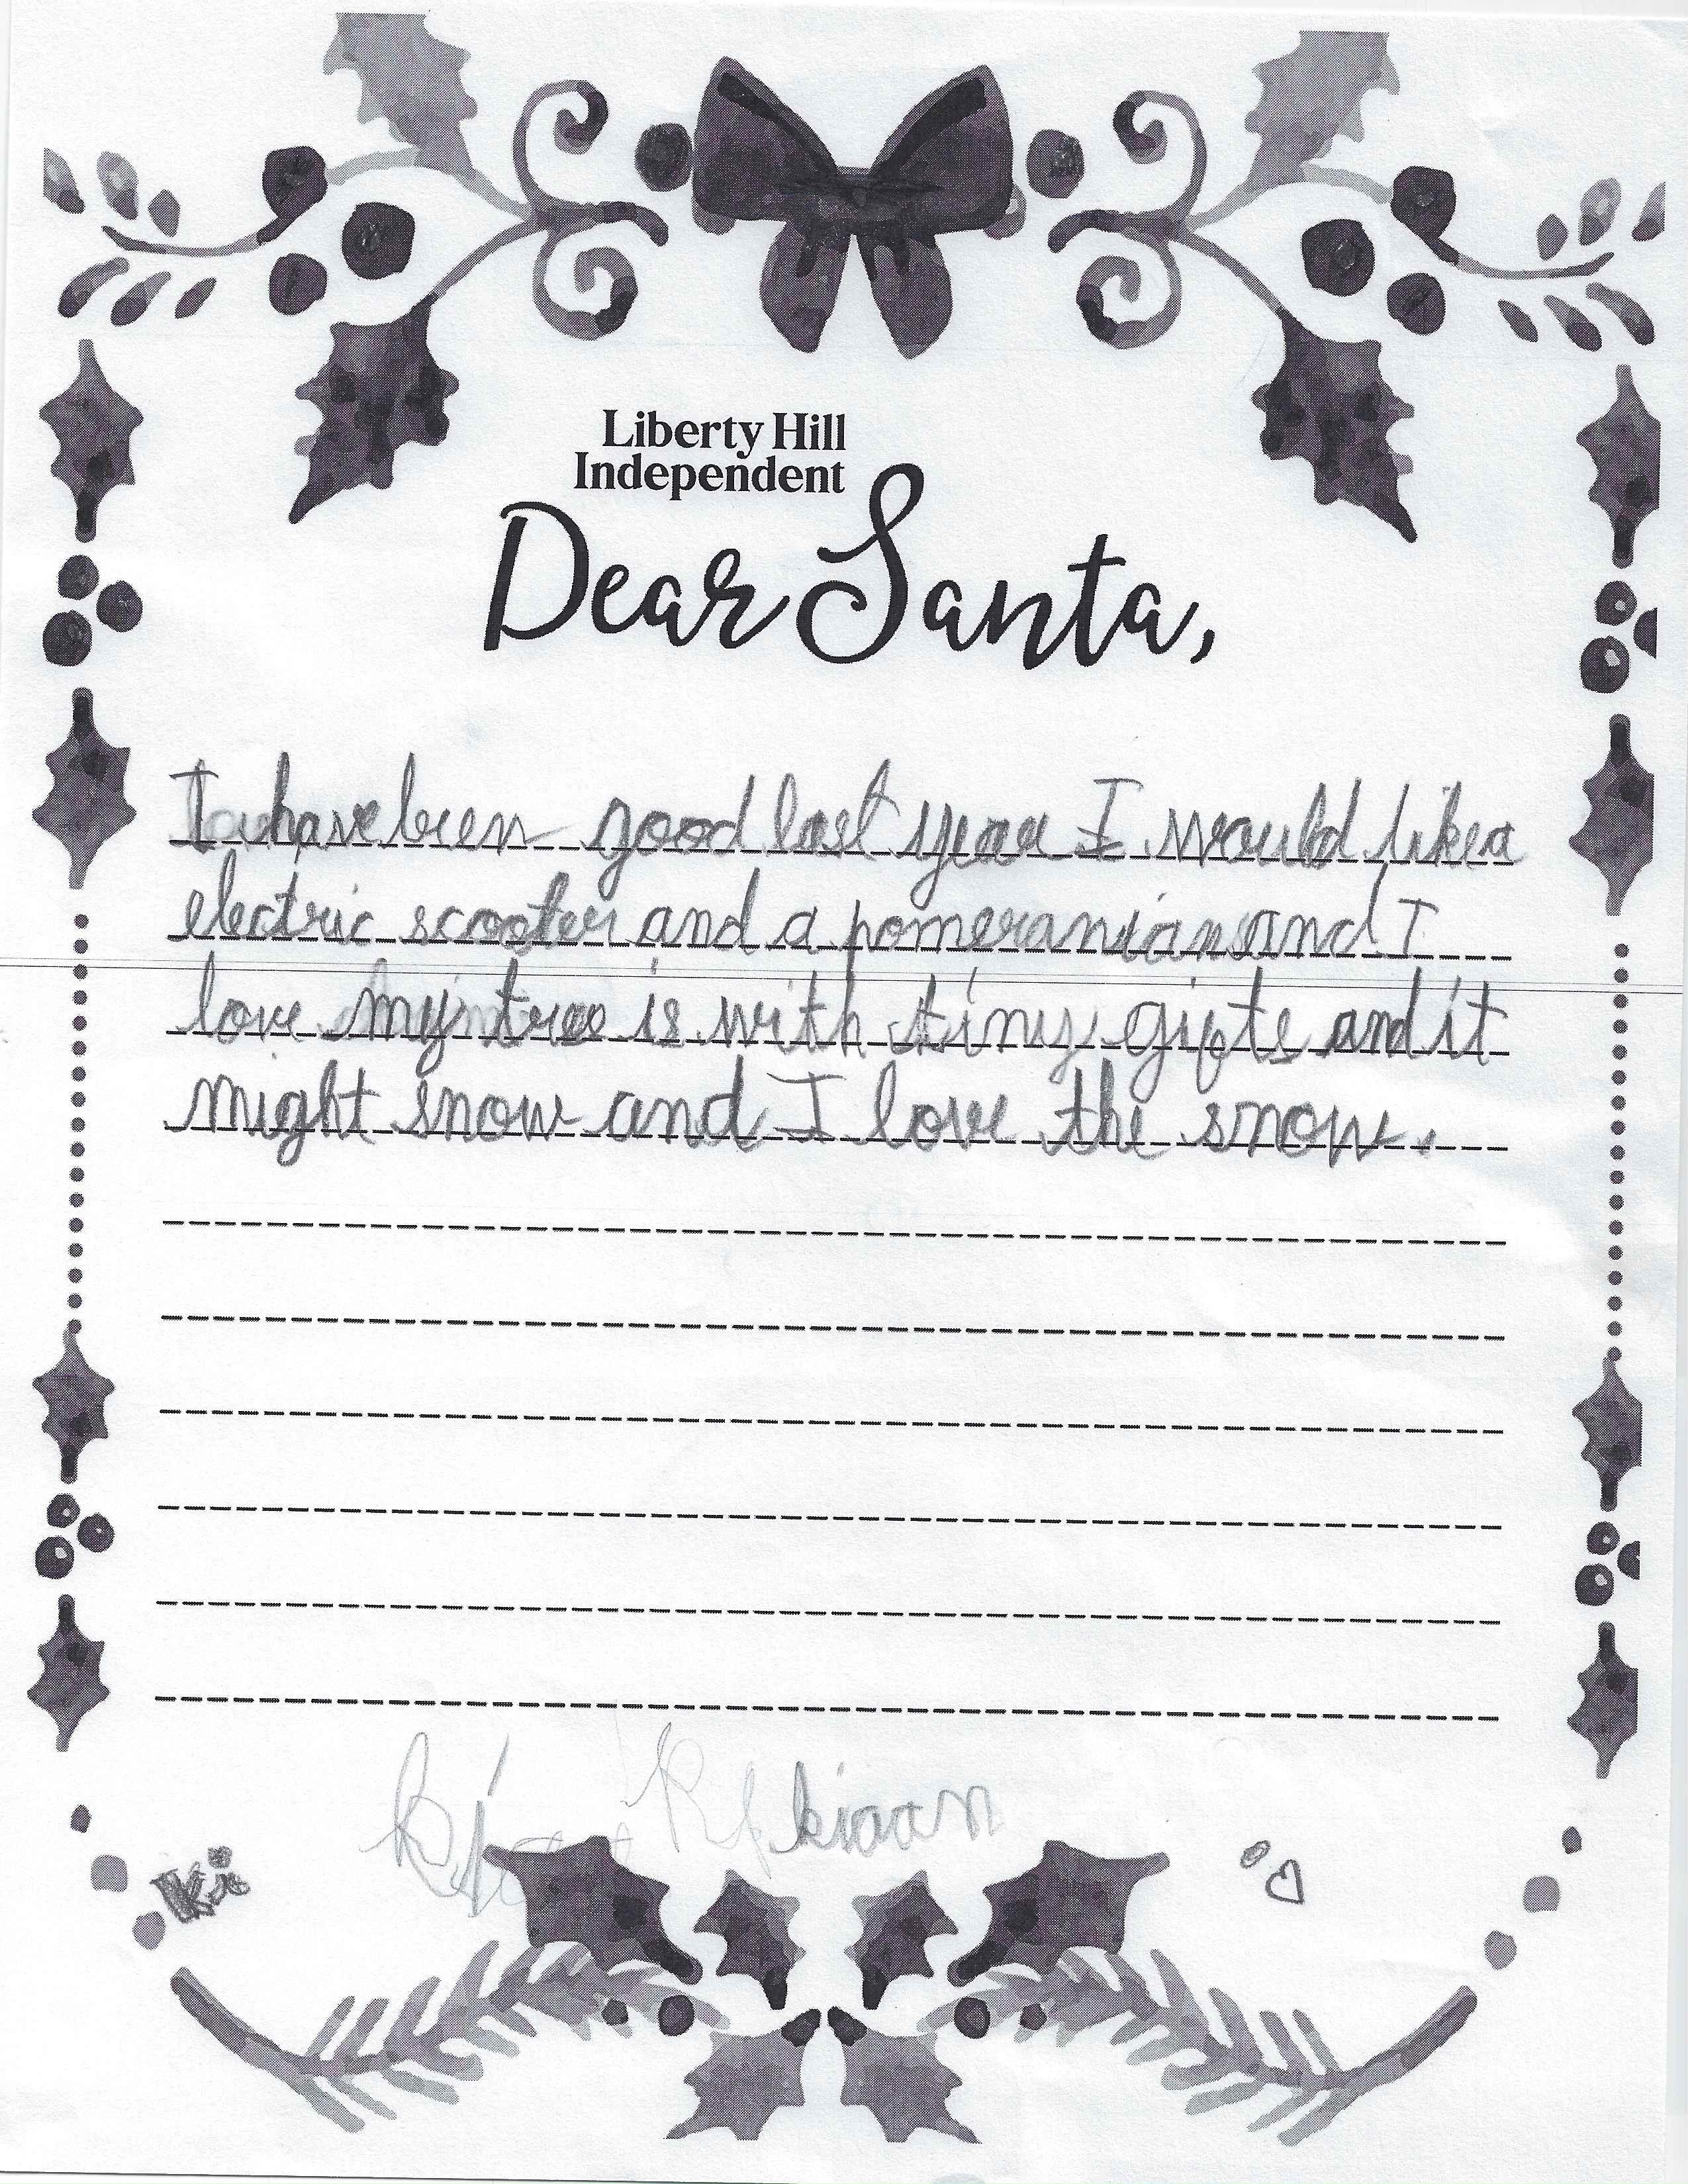 Liberty Hill
Independent
Dear Santa,
I have been good last year I would like a
electric scooter and a pomeranian and I
love my tree is with tiny gifts and it
might snow and I love the snow.
kiaan
Ki